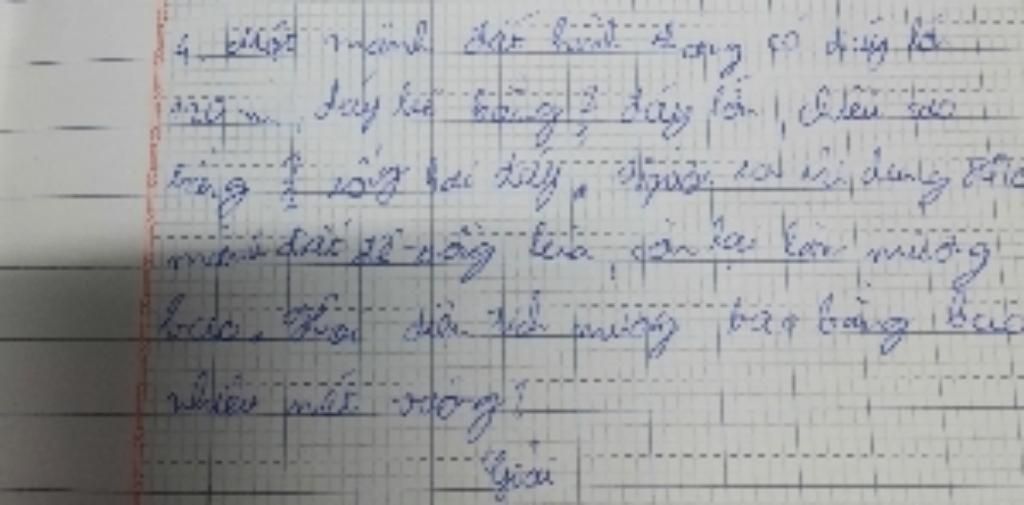 4. Một mảnh đất hình thang có đáy lớn
đáy bé bằng đáy lớn, chiều cao
bằng tổng hai đáy. Người ta sử dụng
mảnh đất để trồng lúa, còn lại làm mương
bao. Hỏi diện tích mương bao bằng bao
nhiêu mét vuông?
Giải